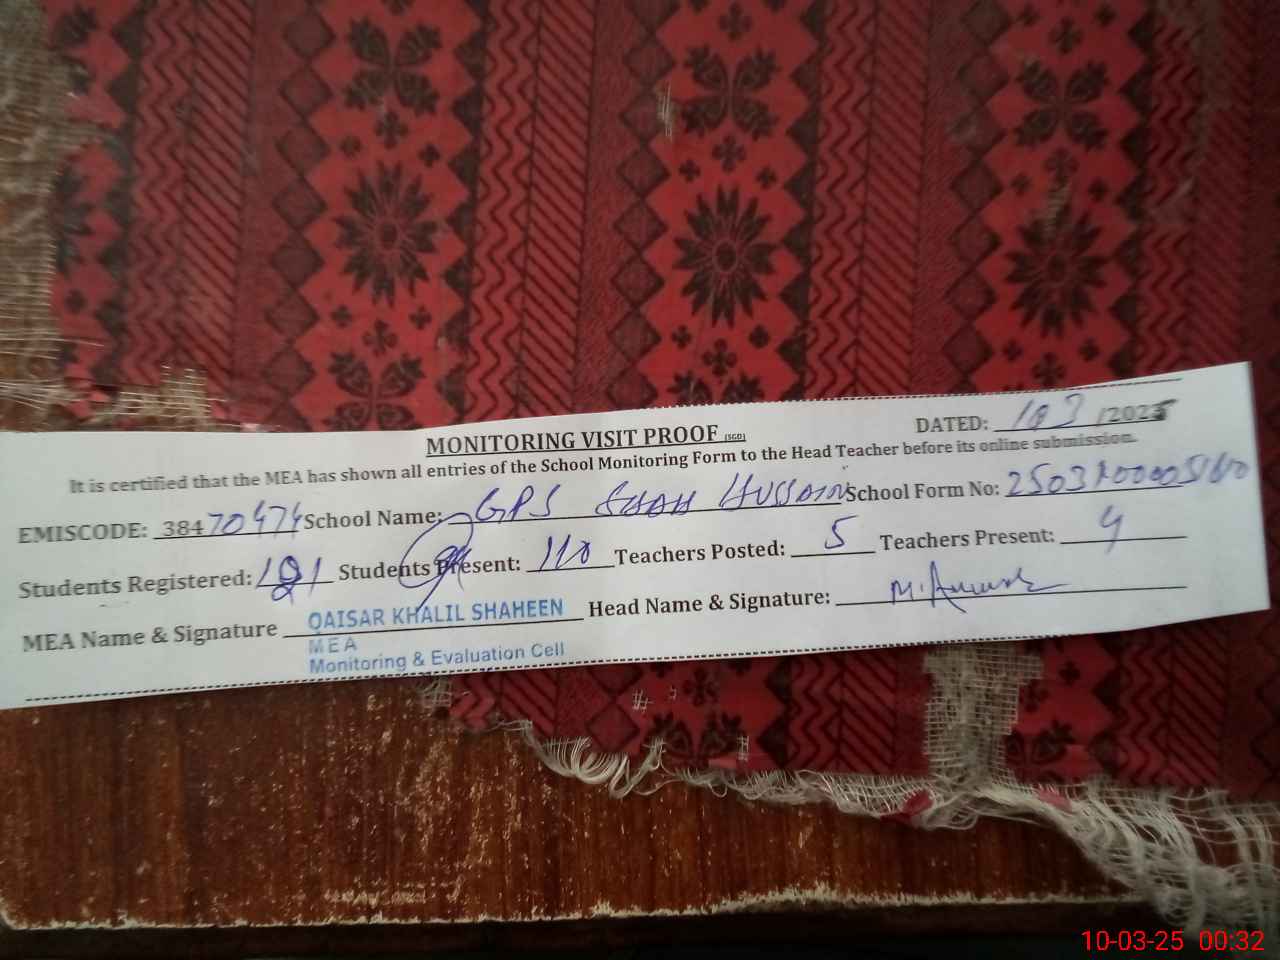 MONITORING VISIT PROOF (SGD)
DATED: 103/2025
It is certified that the MEA has shown all entries of the School Monitoring Form to the Head Teacher before its online submission.
EMISCODE: 38470474 School Name: GPS SHAH HUSSAIN School Form No:
Students Registered: Students Present: 110 Teachers Posted: 5 Teachers Present: 4
MEA Name & Signature QAISAR KHALIL SHAHEEN Head Name & Signature:
MEA
Monitoring & Evaluation Cell
10-03-25 00:32